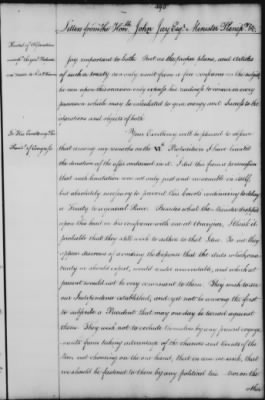 395
Letters from the Honble John Jay Esqr. Minister Plenipo. &c.
joy important to both. But as the proper plans, and articles
of such a treaty can only result from a free conference on the subject,
he can upon this occasion only express his readiness to concur in every
measure which may be calculated to give energy and success to the
operations and objects of both.
Your Excellency will be pleased to observe
that among my remarks on the VIth Proposition I have limited
the duration of the offer contained in it. I did this from a persuasion
that such limitation was not only just and reasonable in itself,
but absolutely necessary to prevent this Court's continuing to delay
a Treaty to a general Peace. Besides what the Minister dropped
upon this head in his conference with me at Aranjues, I think it
probable that they still wish to adhere to that Idea. Do not they
appear desirous of avoiding the expense that the aids which our
treaty in should expect, would render unavoidable, and which at
present would not be very convenient to them. They wish to see
our Independence established, and yet not be among the first
to subscribe a Precedent that may one day be turned against
them. They wish not to exclude themselves by any present engage-
ments from taking advantage of the chances and events of the
War; not choosing on the one hand, that in case we sink, that
we should be fastened to them by any political ties nor on the
other